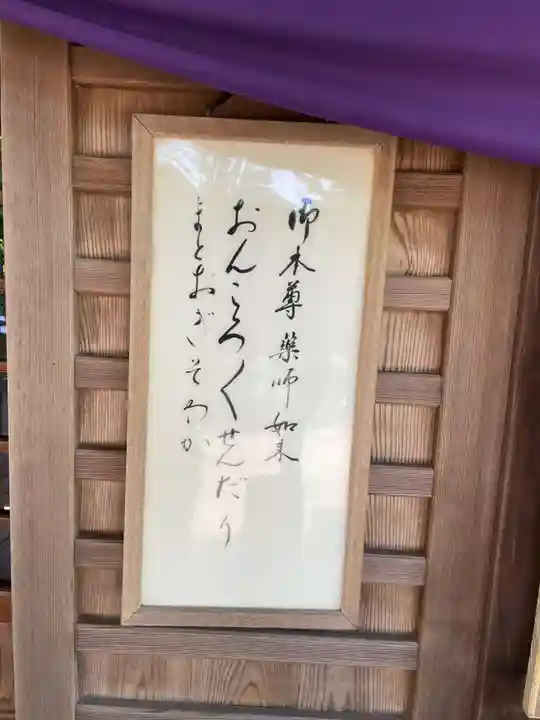 御本尊薬師如来
おんころ〱せんだり
まとおぎいそわか